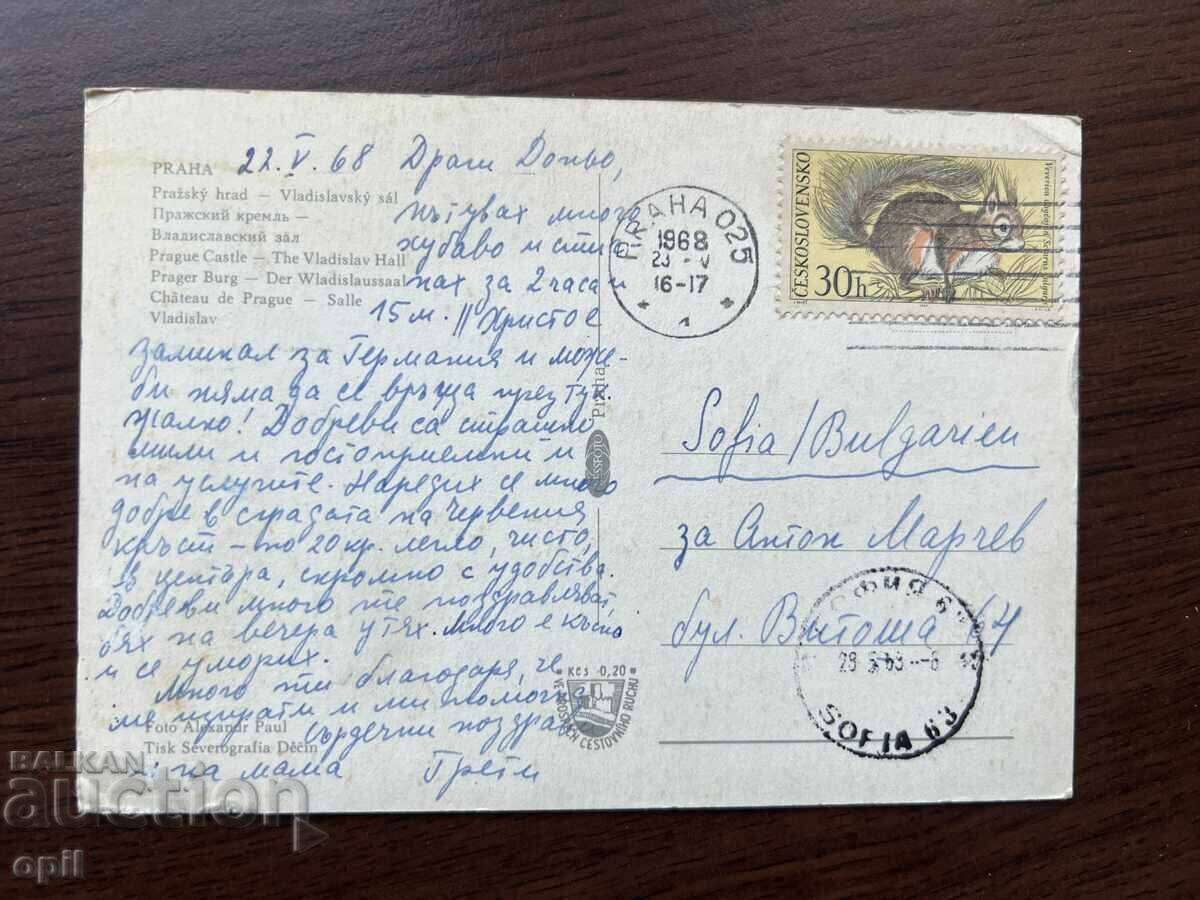 PRAHA
Pražský hrad — Vladislavský sál
Пражский кремль —
Владиславский зал
Prague Castle — The Vladislav Hall
Prager Burg — Der Wladislaussaal
Château de Prague — Salle
Vladislav
22.V.68 Драги Доньо,
пътувах много
хубаво и стиг
нах за 2 часа и
15м. || Христо е
заминал за Германия и може
би няма да се връща през тук.
Жалко! Добреви са страшно
мили и гостоприемни и
на услугите. Наредих се много
добре в сградата на Червения
кръст – по 20 кр. легло, чисто,
в центъра, скромно с удобства.
Добреви много те поздравяват,
бях на вечеря у тях. Много е късно
и се уморих.
Много ти благодаря, че
ме изпрати и ми помогна
Сърдечни поздрави
и на мама Грети
Foto Alexandr Paul
Tisk Severografia Děčín
Praha
Kčs 0,20
CESTOVNÍHO RUCHU
PRAHA 025
1968
23 V
16-17
1
ČESKOSLOVENSKO
30h
Sofia/Bulgarien
за Антон Марчев
бул. Витоша 64
СОФИЯ 63
SOFIA 63
BALKAN
auction
opil